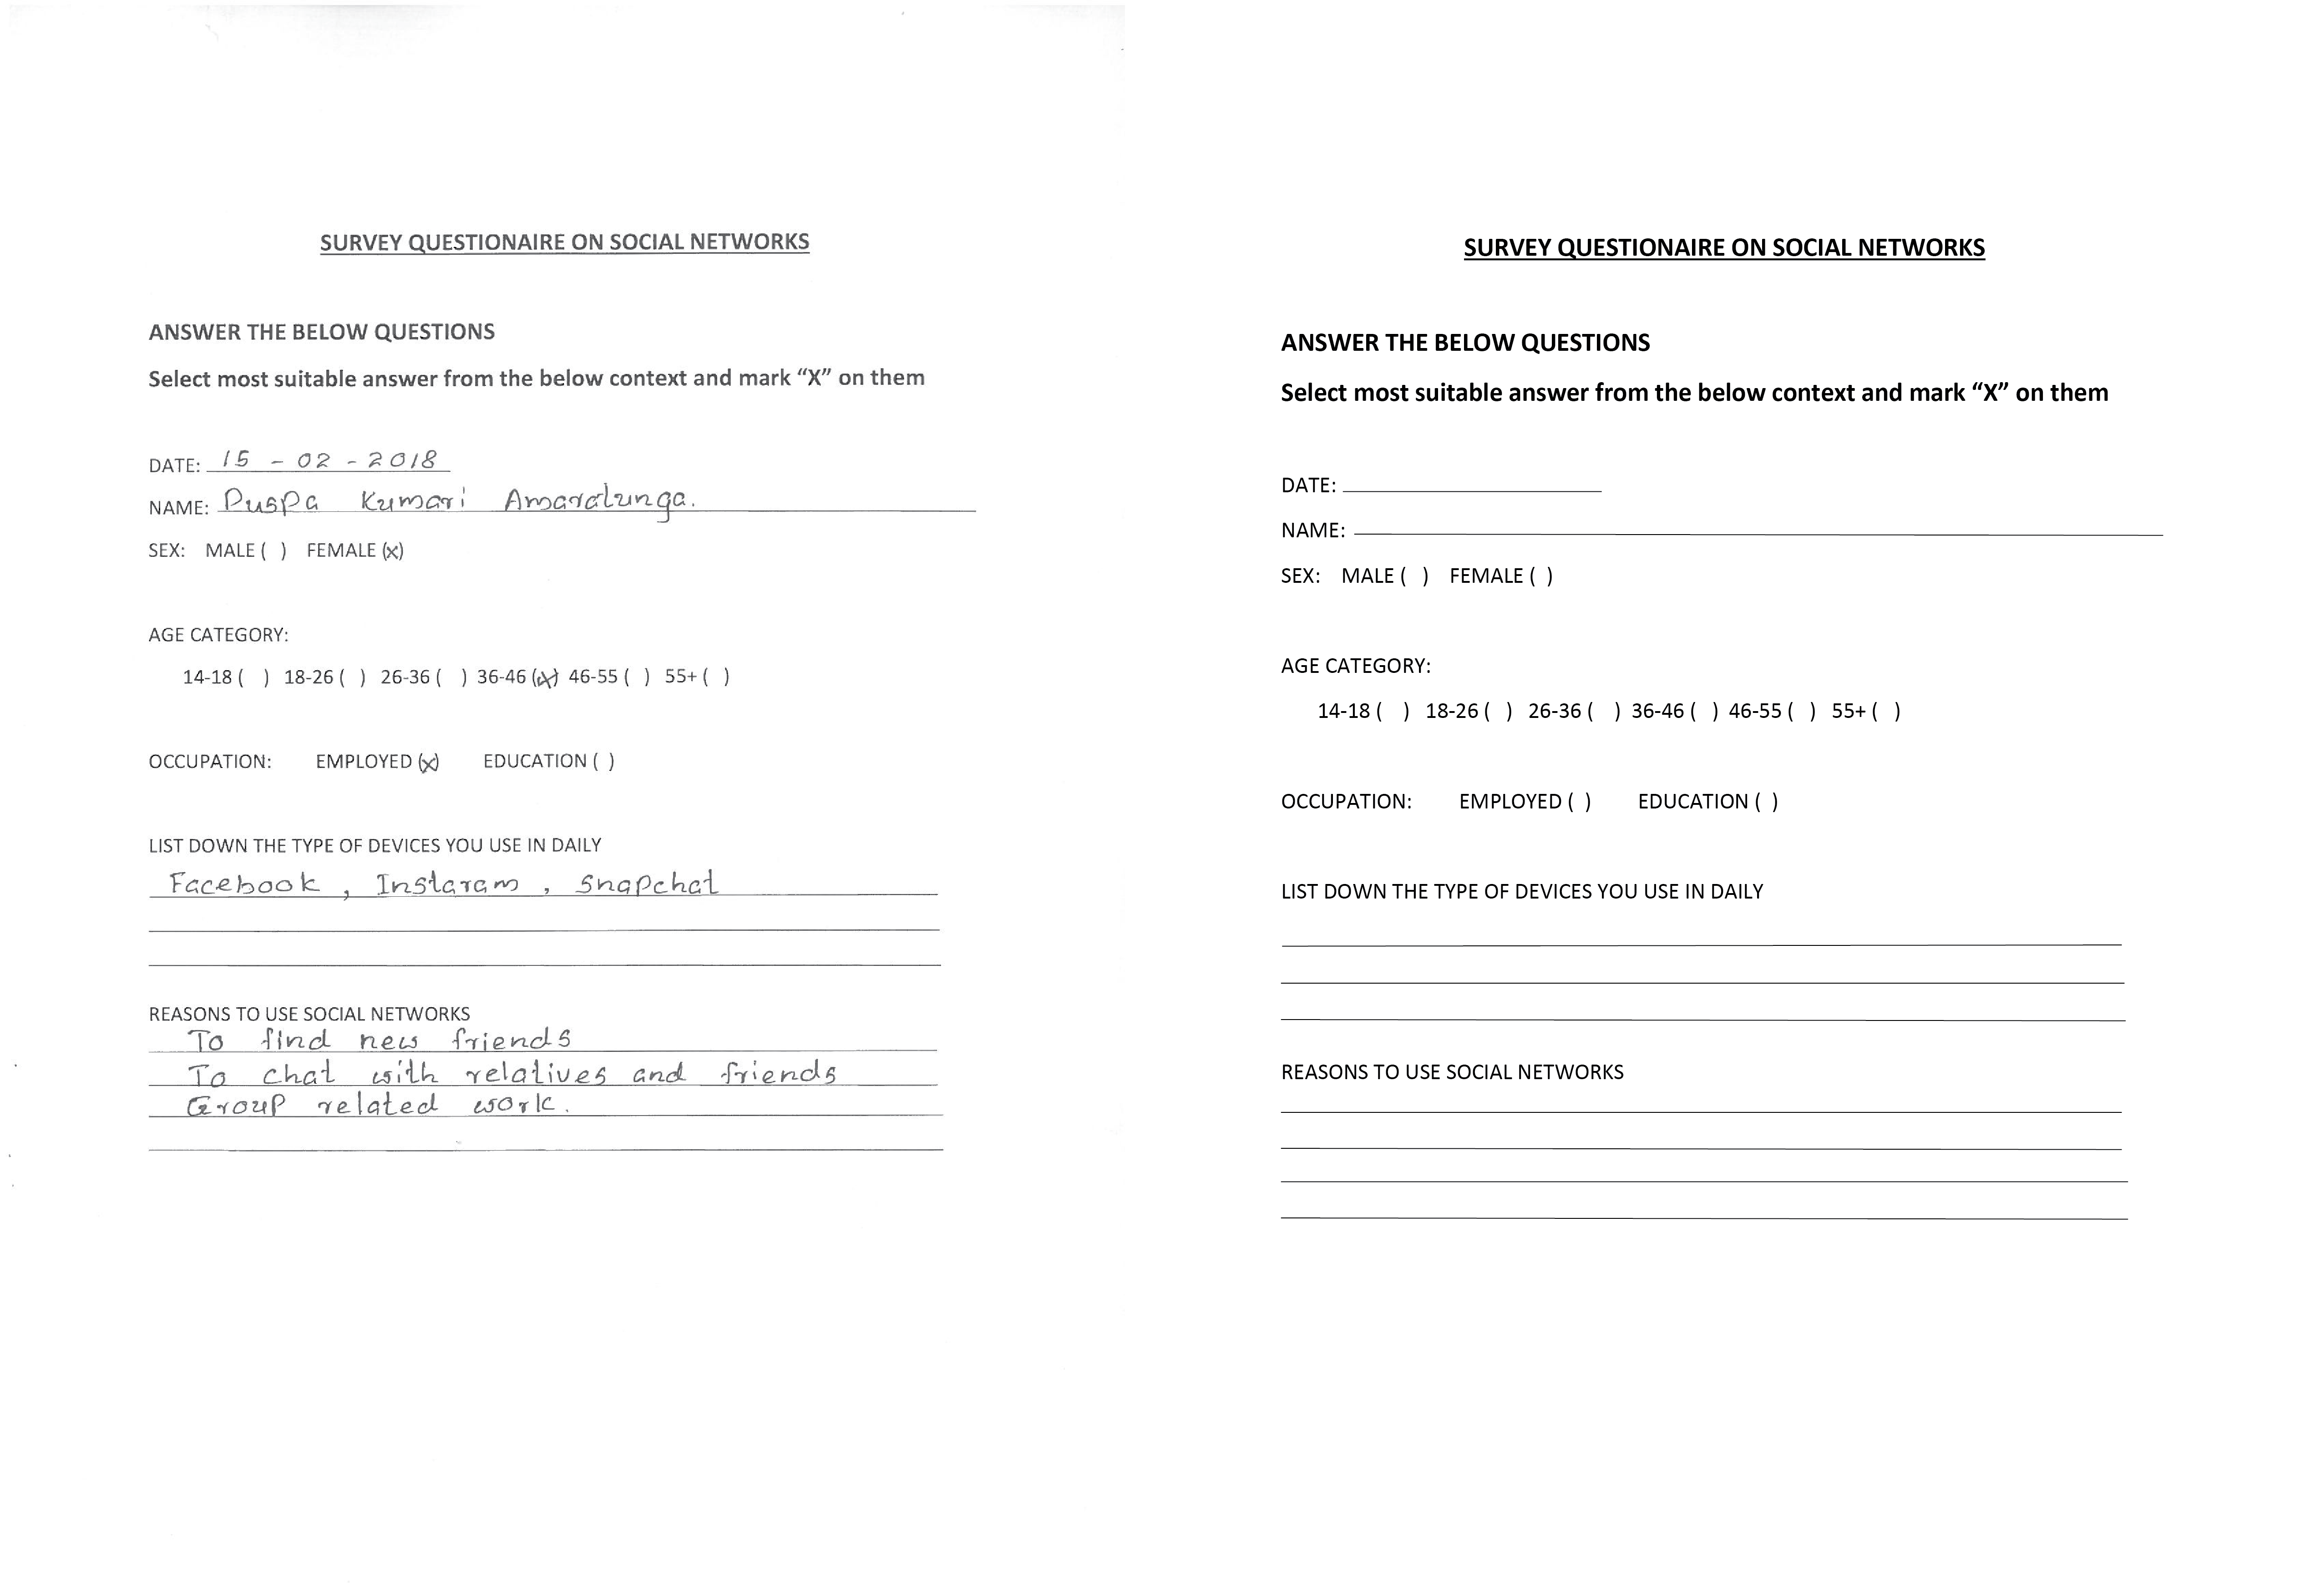 SURVEY QUESTIONAIRE ON SOCIAL NETWORKS
ANSWER THE BELOW QUESTIONS
Select most suitable answer from the below context and mark “X” on them
DATE: 15 - 02 - 2018
NAME: Puspa Kumari Amaratunga.
SEX: MALE ( ) FEMALE (x)
AGE CATEGORY:
14-18 ( ) 18-26 ( ) 26-36 ( ) 36-46 (x) 46-55 ( ) 55+ ( )
OCCUPATION: EMPLOYED (x) EDUCATION ( )
LIST DOWN THE TYPE OF DEVICES YOU USE IN DAILY
Facebook , Instaram , Snapchat
REASONS TO USE SOCIAL NETWORKS
To find new friends
To chat with relatives and friends
Group related work.
SURVEY QUESTIONAIRE ON SOCIAL NETWORKS
ANSWER THE BELOW QUESTIONS
Select most suitable answer from the below context and mark “X” on them
DATE:
NAME:
SEX: MALE ( ) FEMALE ( )
AGE CATEGORY:
14-18 ( ) 18-26 ( ) 26-36 ( ) 36-46 ( ) 46-55 ( ) 55+ ( )
OCCUPATION: EMPLOYED ( ) EDUCATION ( )
LIST DOWN THE TYPE OF DEVICES YOU USE IN DAILY
REASONS TO USE SOCIAL NETWORKS